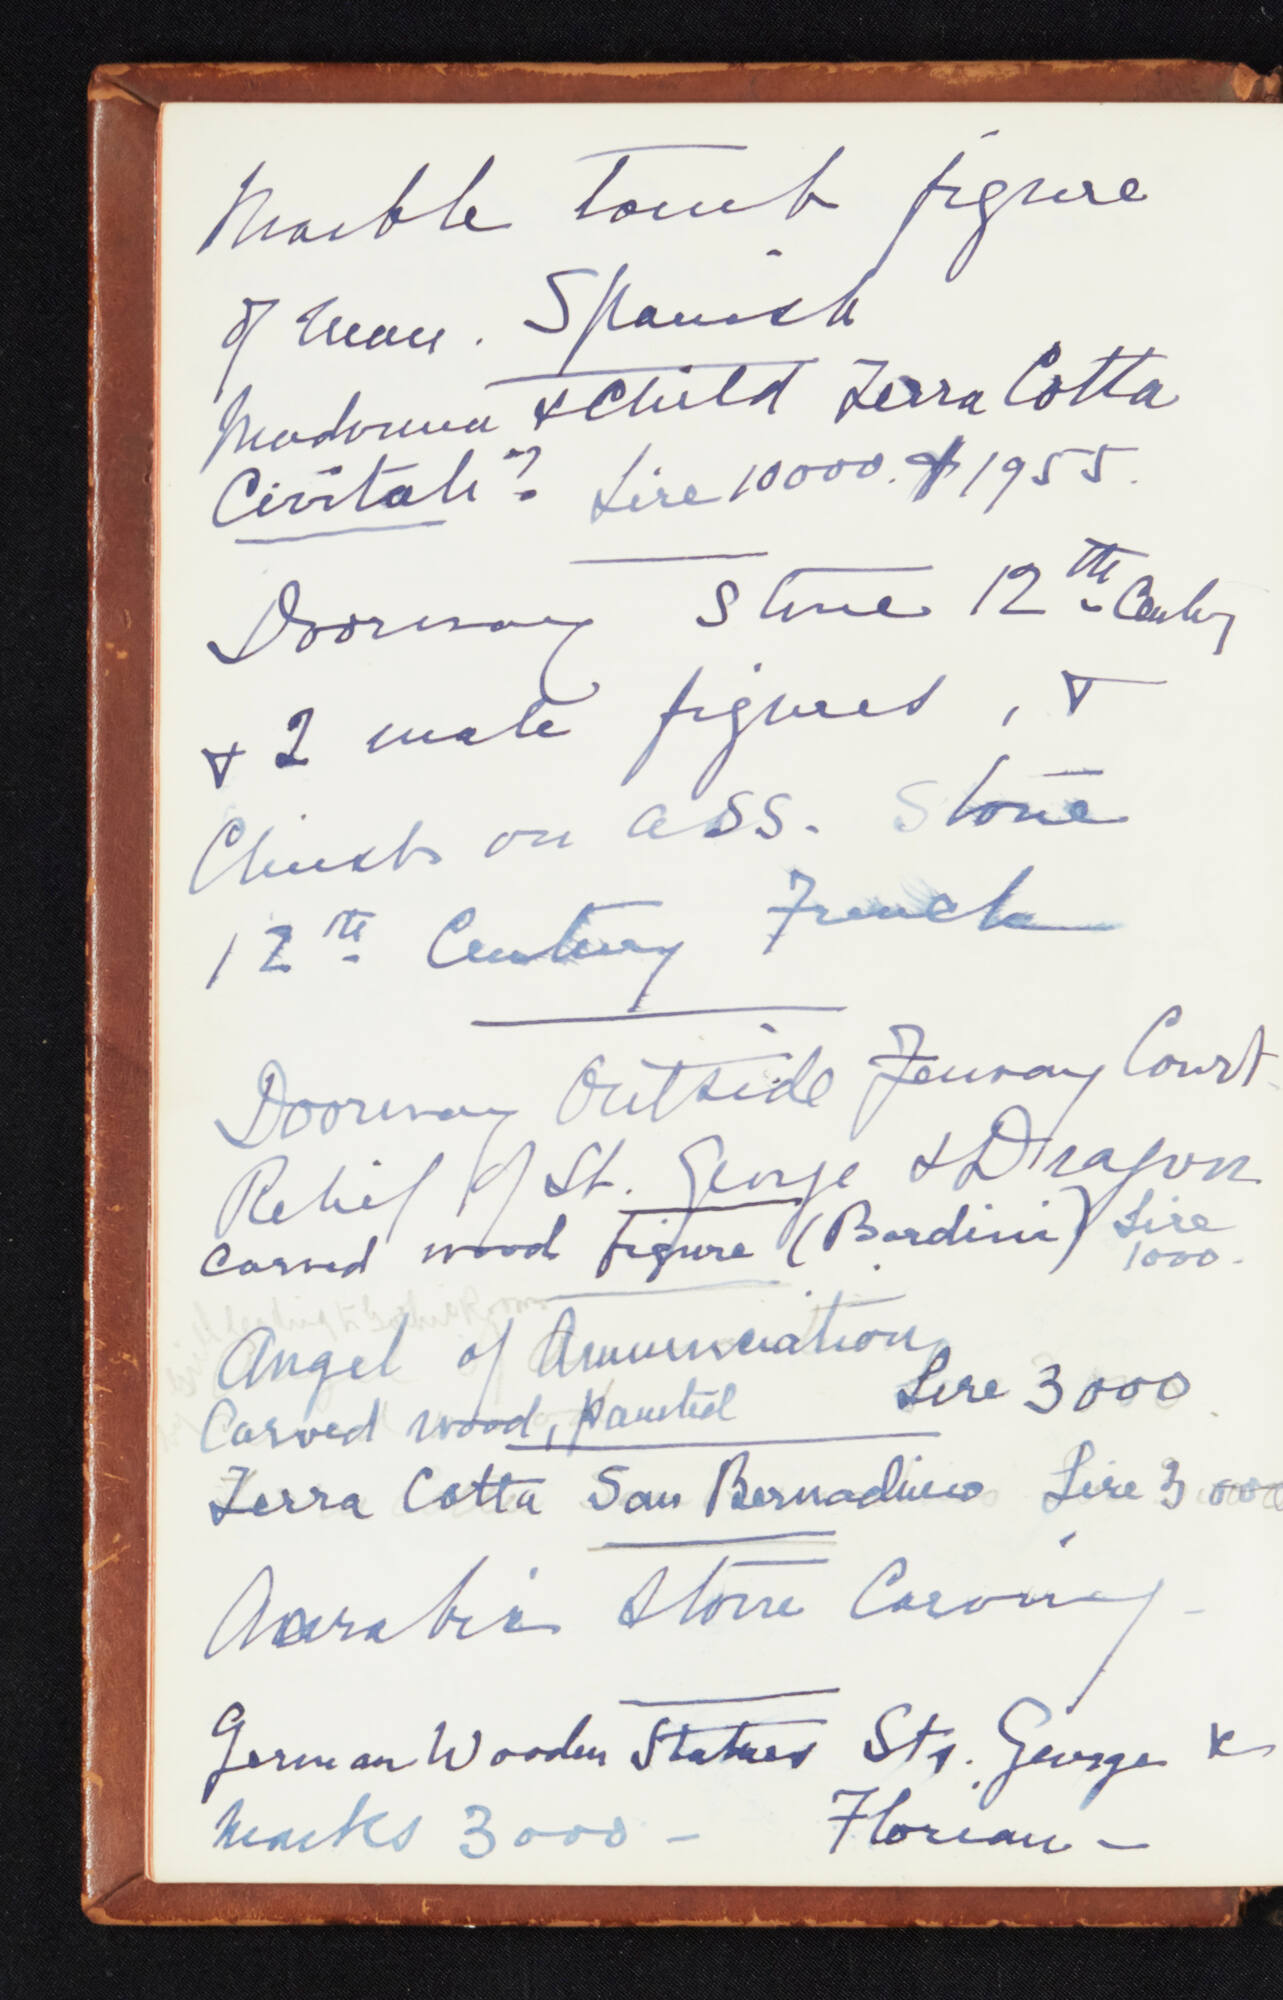 Marble Tomb figure
of Man. Spanish
Madonna & Child Terra Cotta
Civitali? Lire 10000. $1955.
Doorway Stone 12th Century
& 2 male figures, &
Christ on ass. Stone
12th Century French
Doorway Outside Fenway Court
Relief of St. George & Dragon
Carved wood figure (Bardini) Lire
1000.
Angel of Annunciation
Carved wood, painted Lire 3000
Terra Cotta San Bernadino Lire 3000
Aarabic Stone Carving -
German Wooden Statues Sts. George &
Marks 3000 - Florian -